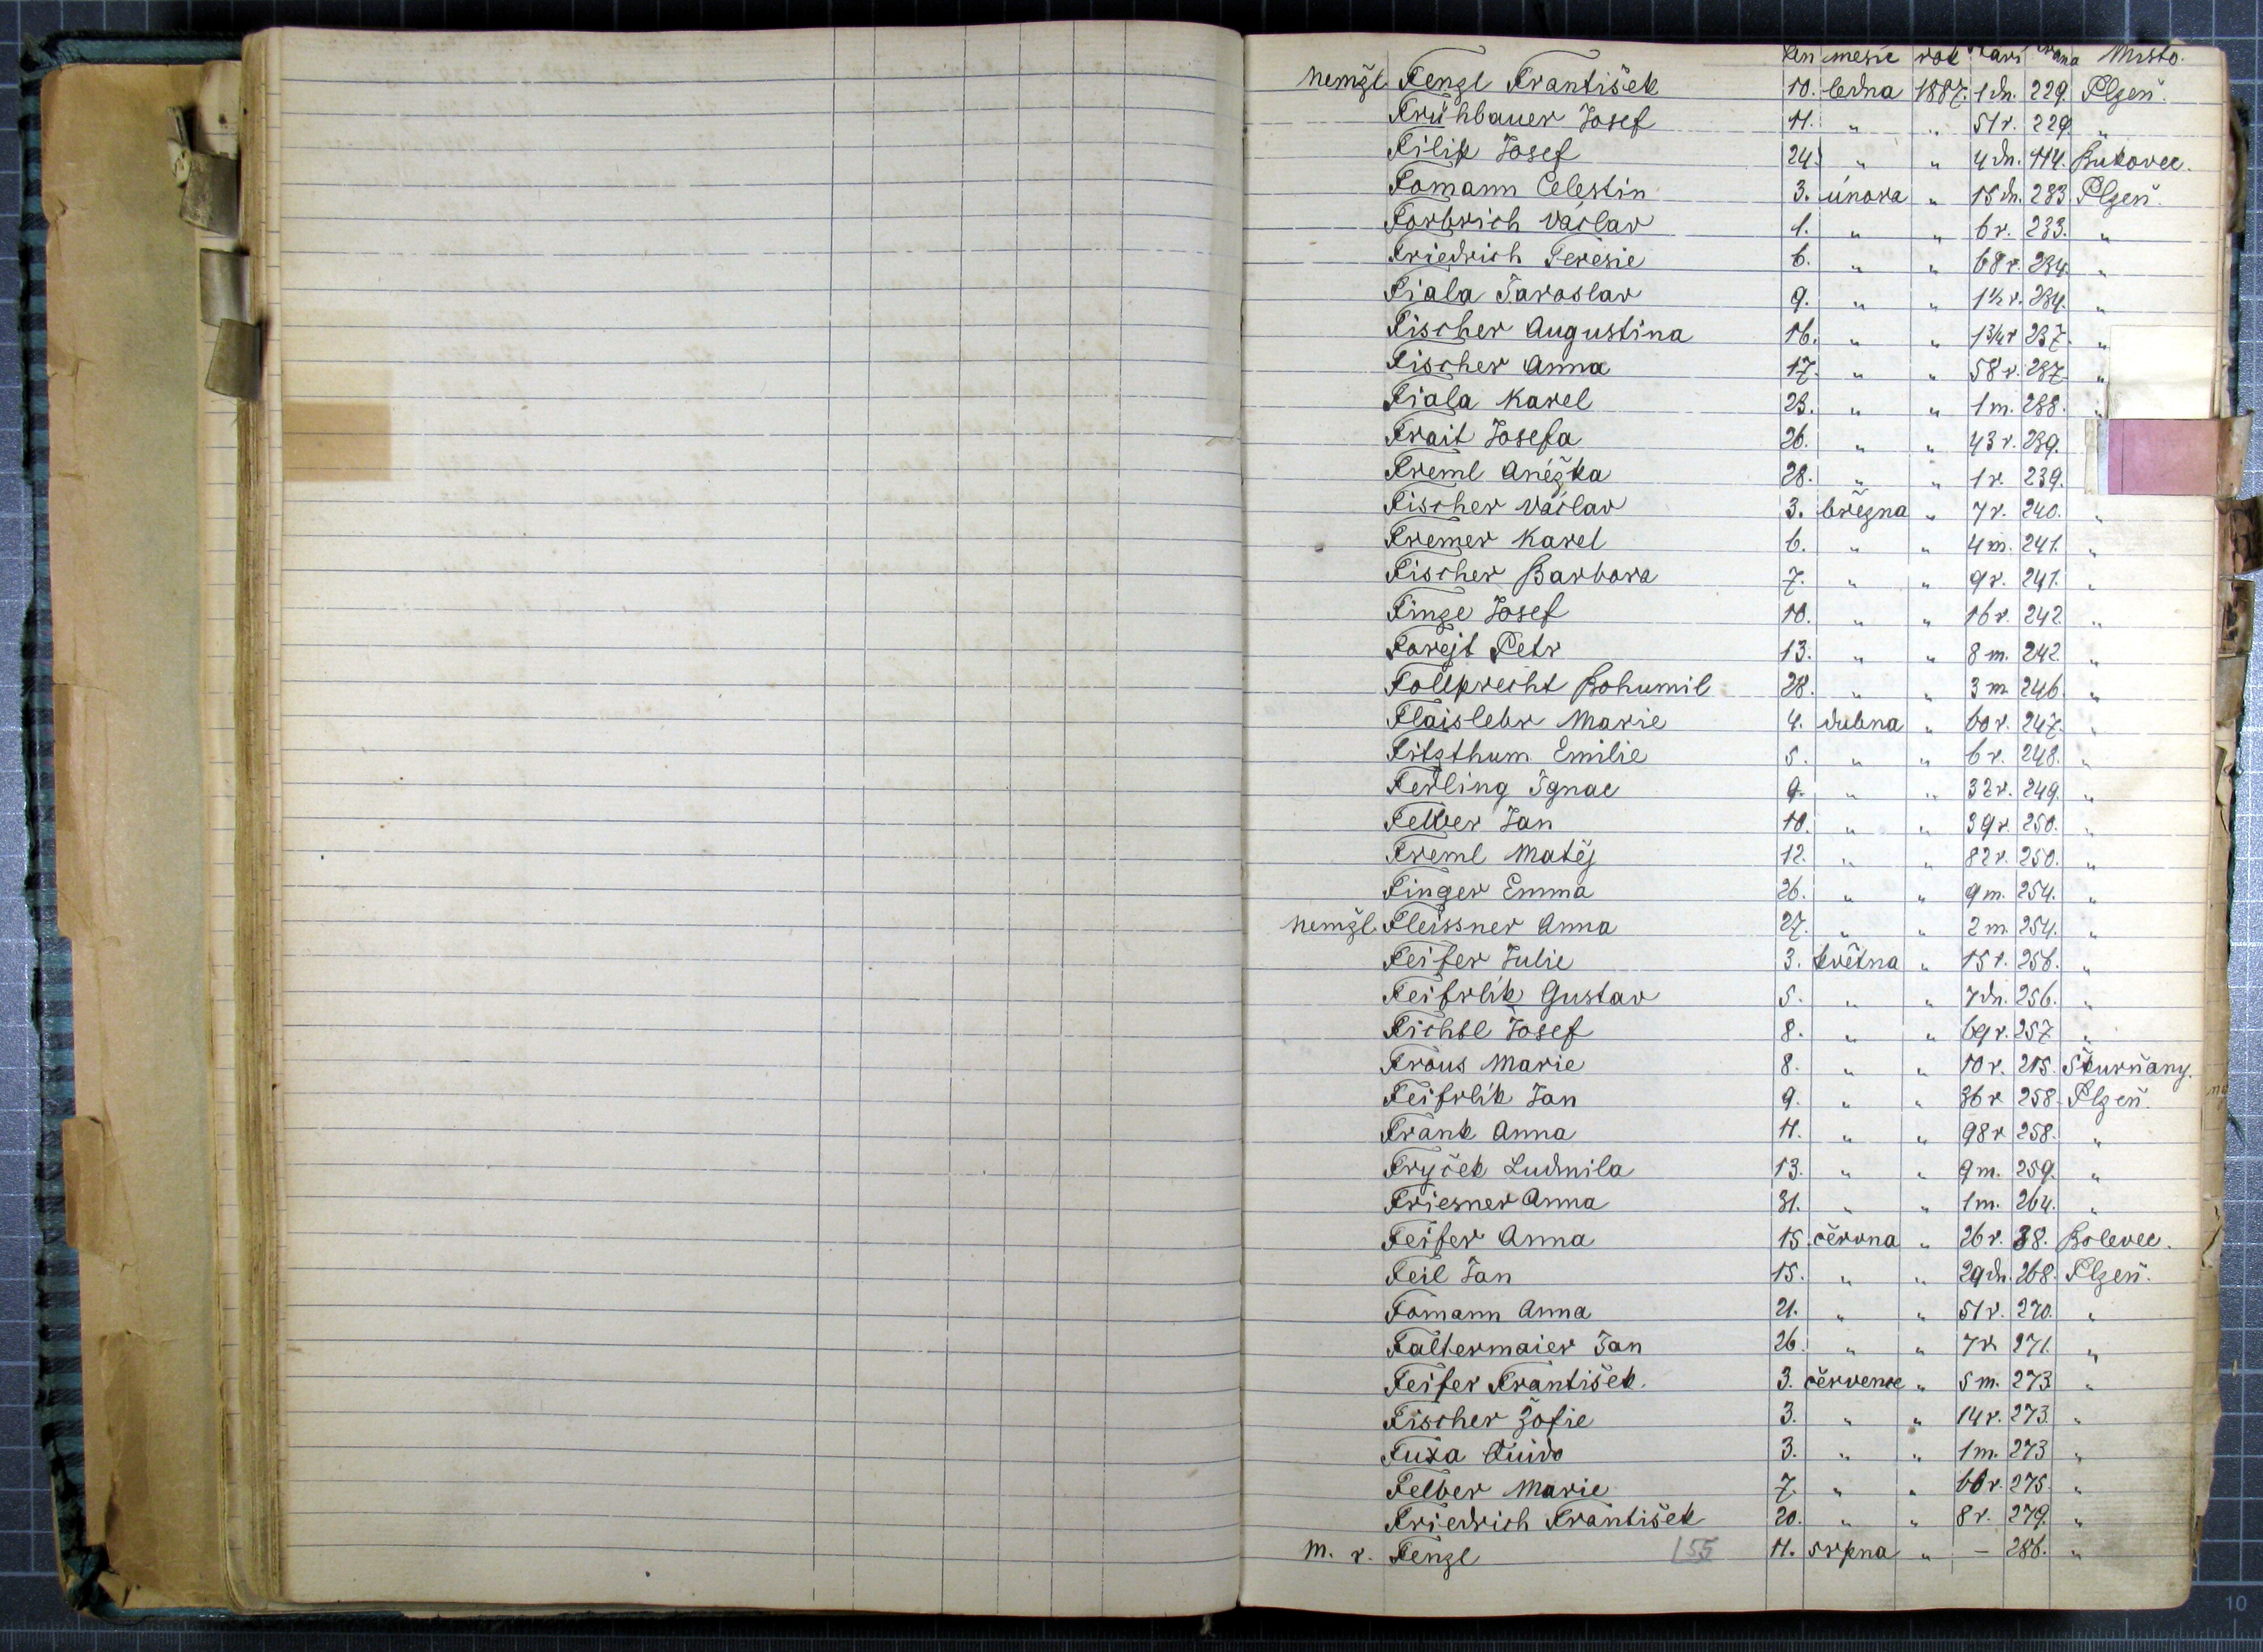 den měsíc rok stáří strana Místo.
nemžl. Fenzl František 10. ledna 1887. 1 dn. 229. Plzeň.
Frühbauer Josef 11. " " 51 r. 229. "
Filip Josef 24. " " 4 dn. 114. Bukovec.
Fomann Celestin 3. února " 15 dn. 233 Plzeň.
Forbrich Václav 1. " " 6 r. 233. "
Friedrich Teresie 6. " " 68 r. 234. "
Fiala Jaroslav 9. " " 1½ r. 234. "
Fischer Augustina 16. " " 1¾ r 237. "
Fischer Anna 17. " " 58 r. 237. "
Fiala Karel 23. " " 1 m. 238. "
Frait Josefa 26. " " 43 r. 239.
Freml Anéžka 28. " " 1 r. 239.
Fischer Václav 3. března " 7 r. 240. "
Fremer Karel 6. " " 4 m. 241. "
Fischer Barbora 7. " " 9 r. 241. "
Finze Josef 10. " " 16 r. 242 "
Forejt Petr 13. " " 8 m. 242. "
Follprecht Bohumil 28. " " 3 m. 246. "
Flaislebr Marie 4. dubna " 60 r. 247. "
Fitzthum Emilie 5. " " 6 r. 248. "
Ferling Ignac 9. " " 32 r. 249. "
Felber Jan 10. " " 39 r. 250. "
Freml Matěj 12. " " 82 r. 250. "
Finger Emma 26. " " 9 m. 254. "
nemžl. Fleissner Anna 27. " " 2 m. 254. "
Feifer Julie 3. května " 15 r. 256. "
Feifrlík Gustav 5. " " 7 dn. 256. "
Fichtl Josef 8. " " 69 r. 257 "
Frous Marie 8. " " 10 r. 215. Škurňany.
Feifrlík Jan 9. " " 36 r 258. Plzeň.
Frank Anna 11. " " 98 r 258. "
Fryček Ludmila 13. " " 9 m. 259. "
Friesner Anna 31. " " 1 m. 264. "
Feifer Anna 15. června " 26 r. 38. Bolevec.
Feil Jan 15. " " 29 dn. 268. Plzeň.
Fomann Anna 21. " " 51 r. 270. "
Faltermaier Jan 26. " " 7 r. 271. "
Feifer František. 3. července " 5 m. 273. "
Fischer Žofie 3. " " 14 r. 273. "
Fuxa Quido 3. " " 1 m. 273 "
Felber Marie 7. " " 66 r. 275. "
Friedrich František 20. " " 8 r. 279. "
m. r. Fenzl 155 11. srpna " – 286. "
10